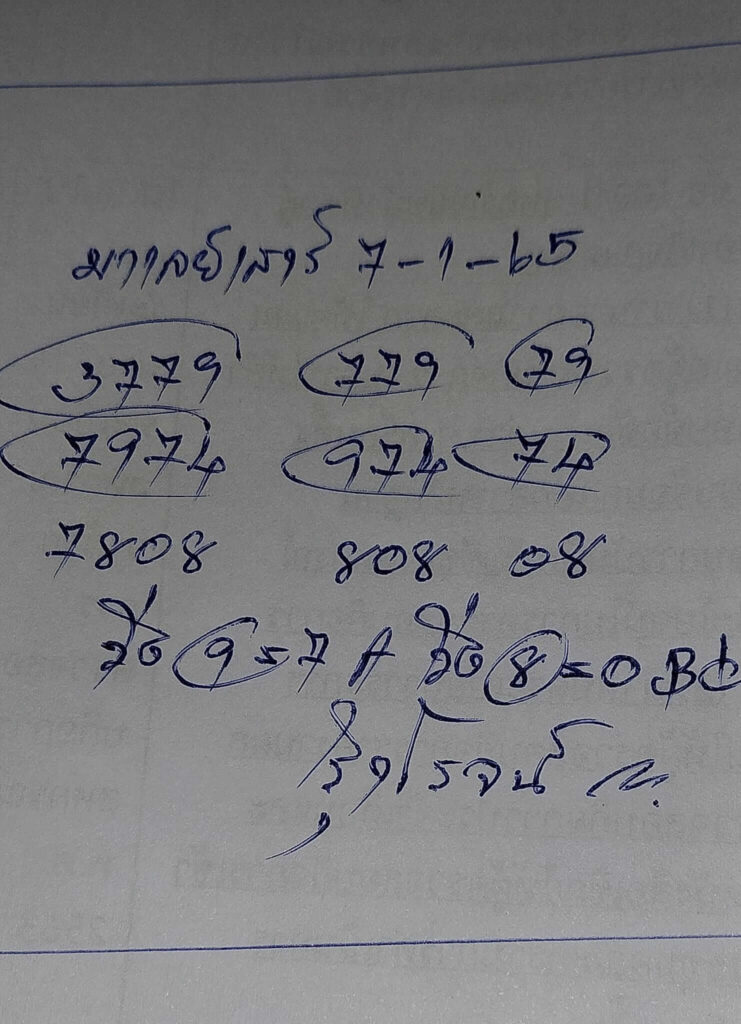 มาเลย์เสาร์ 7-1-65
3779 779 79
7974 974 74
7808 808 08
วิ่ง 9=7 A วิ่ง 8=0 B
รุ่งโรจน์ พ.